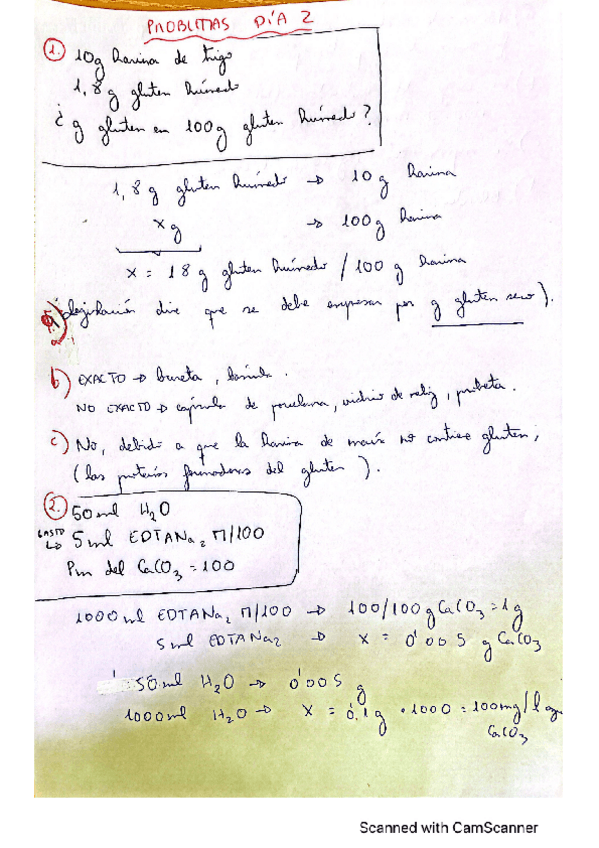 PROBLEMAS DÍA 2
1. 10g harina de trigo
1,8 g gluten húmedo
¿g gluten en 100g gluten húmedo?
1,8 g gluten húmedo → 10 g harina
x g → 100g harina
x = 18 g gluten húmedo / 100 g harina
a) (legislación dice que se debe expresar por g gluten seco).
b) EXACTO → bureta, báscula.
NO EXACTO → cápsula de porcelana, vidrio de reloj, probeta.
c) No, debido a que la harina de maíz no contiene gluten,
(las proteínas formadoras del gluten).
2. 50 ml H2O
GASTO
↳ 5 ml EDTANa2 M/100
Pm del CaCO3 = 100
1000 ml EDTANa2 M/100 → 100/100 g CaCO3 = 1g
5 ml EDTANa2 → x = 0'005 g CaCO3
50 ml H2O → 0'005 g
1000 ml H2O → x = 0,1g · 1000 = 100mg/l
CaCO3
Scanned with CamScanner